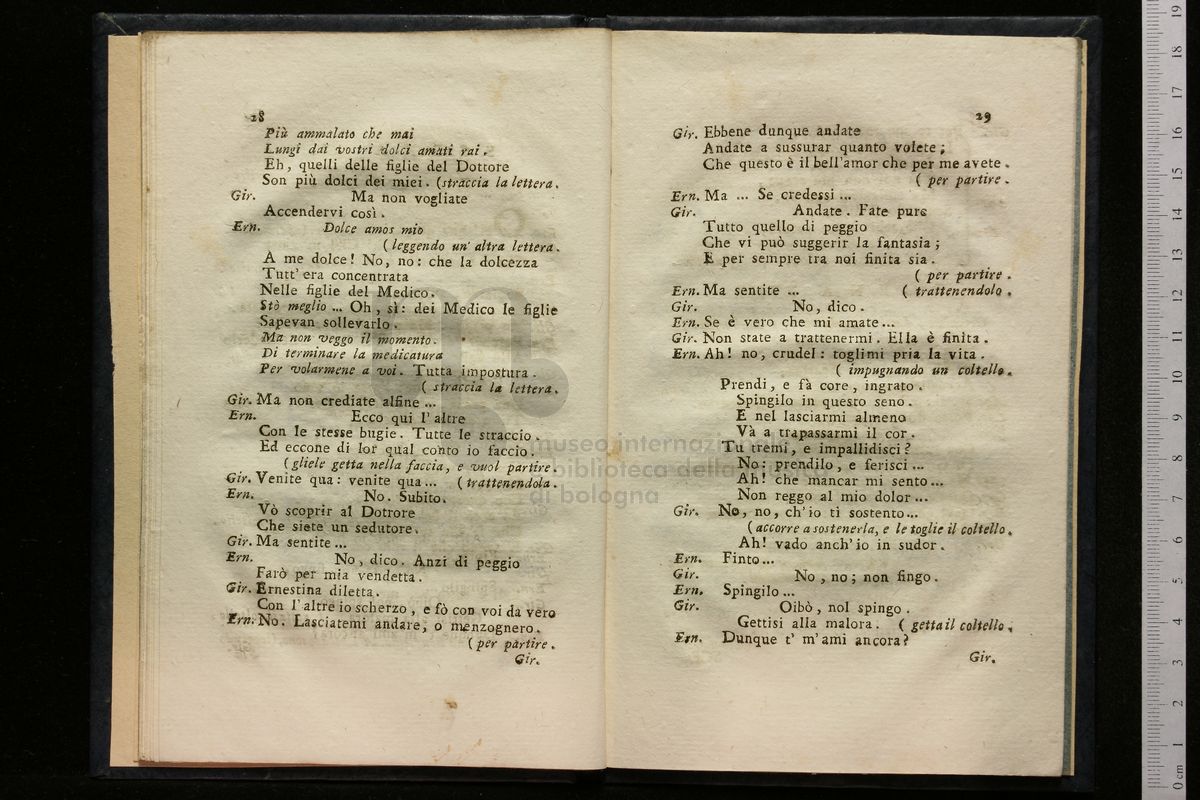 28
Più ammalato che mai
Lungi dai vostri dolci amati rai.
Eh, quelli delle figlie del Dottore
Son più dolci dei miei. (straccia la lettera.
Gir. Ma non vogliate
Accendervi così.
Ern. Dolce amos mio
(leggendo un' altra lettera.
A me dolce! No, no: che la dolcezza
Tutt' era concentrata
Nelle figlie del Medico.
Stò meglio ... Oh, sì: dei Medico le figlie
Sapevan sollevarlo.
Ma non veggo il momento.
Di terminare la medicatura
Per volarmene a voi. Tutta impostura.
(straccia la lettera.
Gir. Ma non crediate alfine ...
Ern. Ecco qui l' altre
Con le stesse bugie. Tutte le straccio.
Ed eccone di lor qual conto io faccio.
(gliele getta nella faccia, e vuol partire.
Gir. Venite qua: venite qua ... (trattenendola.
Ern. No. Subito.
Vò scoprir al Dottrore
Che siete un sedutore.
Gir. Ma sentite ...
Ern. No, dico. Anzi di peggio
Farò per mia vendetta.
Gir. Ernestina diletta.
Con l' altre io scherzo, e fò con voi da vero
Ern. No. Lasciatemi andare, o menzognero.
(per partire.
Gir.
29
Gir. Ebbene dunque andate
Andate a sussurar quanto volete;
Che questo è il bell'amor che per me avete.
(per partire.
Ern. Ma ... Se credessi ...
Gir. Andate. Fate pure
Tutto quello di peggio
Che vi può suggerir la fantasia;
E per sempre tra noi finita sia.
(per partire.
Ern. Ma sentite ... (trattenendolo.
Gir. No, dico.
Ern. Se è vero che mi amate...
Gir. Non state a trattenermi. Ella è finita.
Ern. Ah! no, crudel: toglimi pria la vita.
(impugnando un coltello.
Prendi, e fà core, ingrato.
Spingilo in questo seno.
E nel lasciarmi almeno
Và a trapassarmi il cor.
Tu tremi, e impallidisci?
No: prendilo, e ferisci ...
Ah! che mancar mi sento...
Non reggo al mio dolor...
Gir. No, no, ch'io ti sostento...
(accorre a sostenerla, e le toglie il coltello.
Ah! vado anch'io in sudor.
Ern. Finto...
Gir. No, no; non fingo.
Ern. Spingilo ...
Gir. Oibò, nol spingo.
Gettisi alla malora. (getta il coltello.
Ern. Dunque t' m'ami ancora?
Gir.
museo internazionale
e biblioteca della musica
di bologna
0 cm 1 2 3 4 5 6 7 8 9 10 11 12 13 14 15 16 17 18 19